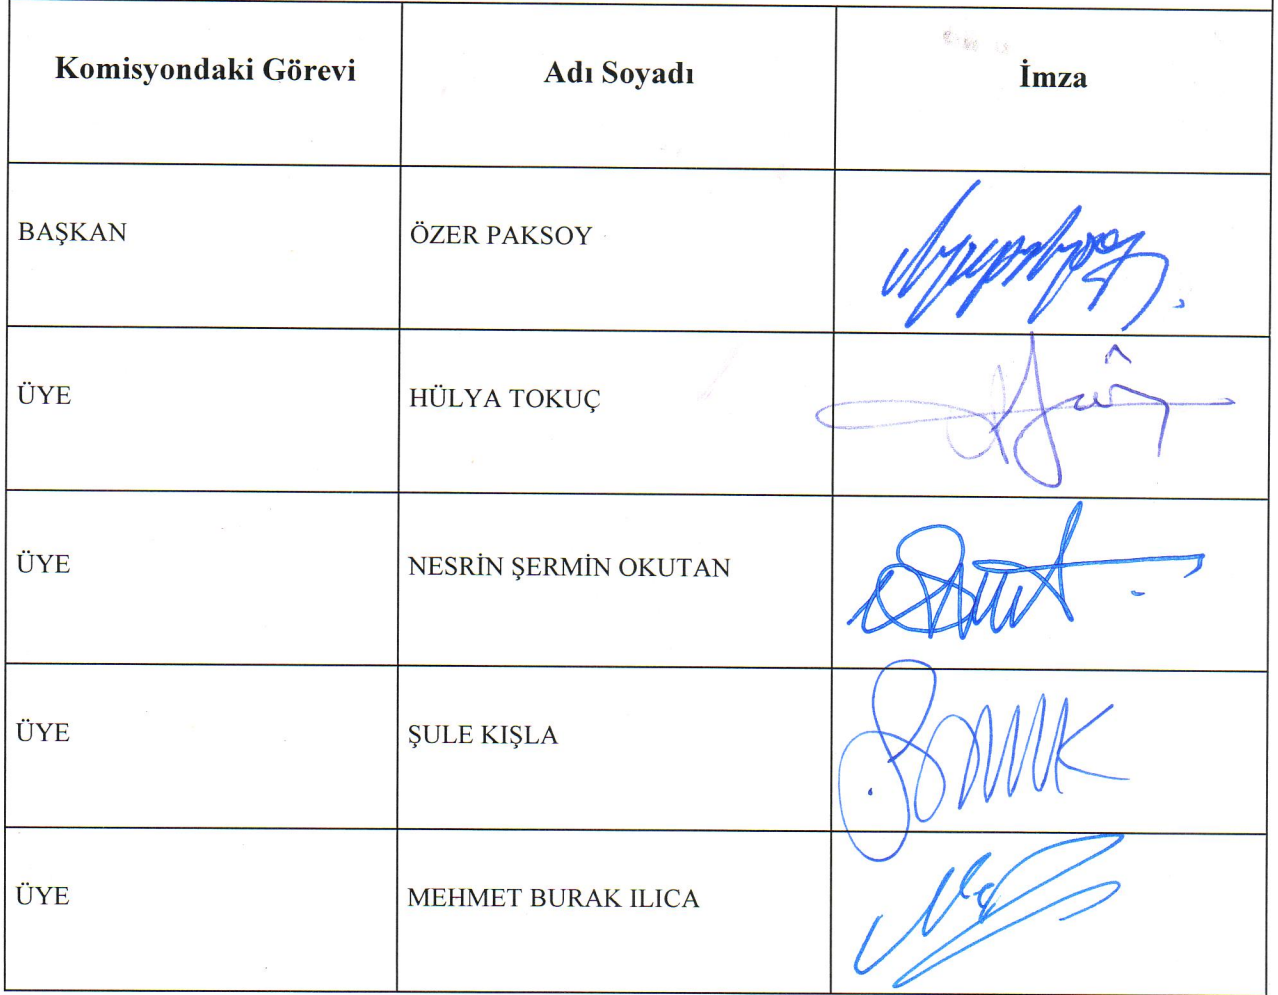 Komisyondaki Görevi Adı Soyadı İmza
BAŞKAN ÖZER PAKSOY
ÜYE HÜLYA TOKUÇ
ÜYE NESRİN ŞERMİN OKUTAN
ÜYE ŞULE KIŞLA
ÜYE MEHMET BURAK ILICA